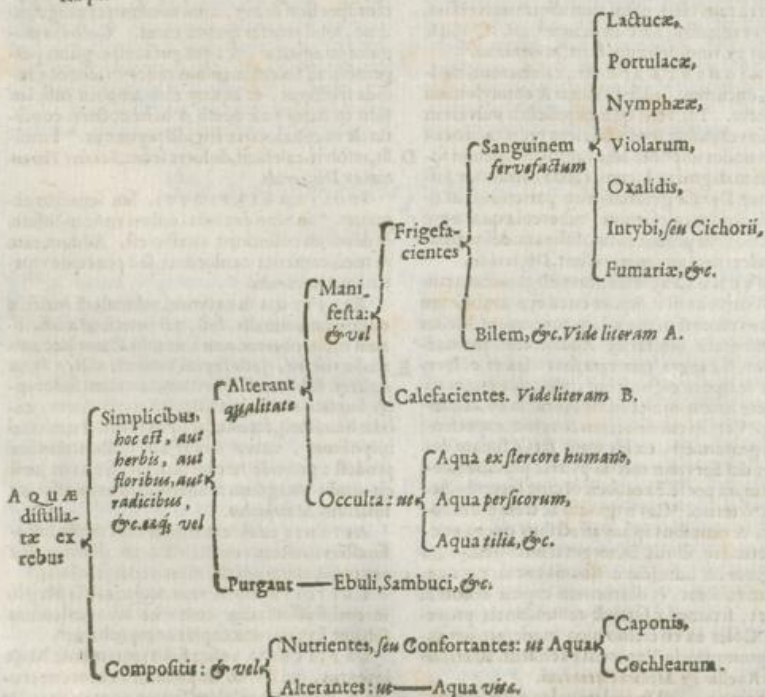 AQUÆ
distilla-
tæ ex
rebus
Simplicibus,
hoc est, aut
herbis, aut
floribus, aut
radicibus,
&c. eaq; vel
Alterant
qualitate
Mani-
festa:
& vel
Frigefa-
cientes
Sanguinem
fervefactum
Lactucæ,
Portulacæ,
Nymphææ,
Violarum,
Oxalidis,
Intybi, seu Cichorii,
Fumariæ, &c.
Bilem, &c. Vide literam A.
Calefacientes. Vide literam B.
Occulta: ut
Aqua ex stercore humano,
Aqua persicorum,
Aqua tiliæ, &c.
Purgant — Ebuli, Sambuci, &c.
Compositis: & vel
Nutrientes, seu Confortantes: ut Aqua
Caponis,
Cochlearum.
Alterantes: ut — Aqua vitæ.